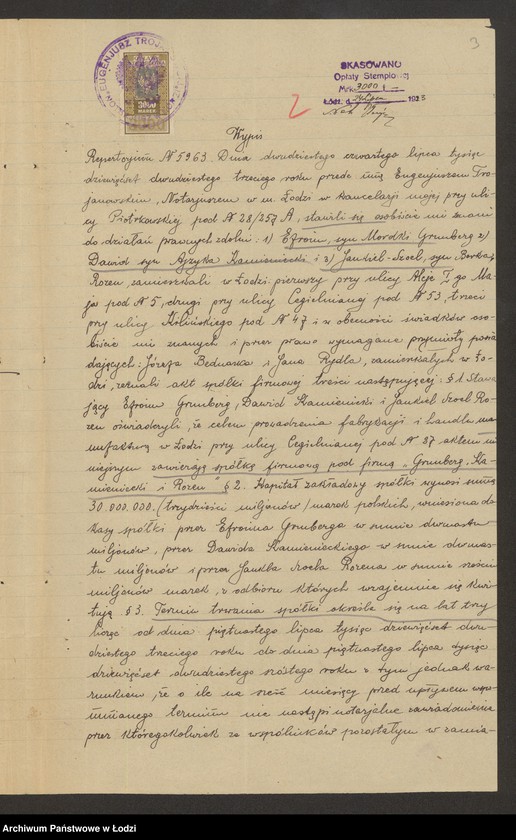 3
EUGENJUSZ TROJ
3000
MAREK
SKASOWANO
Opłaty Stemplowej
Mrk. 3000 f. —
Łódź, d. 24 lipca 1923
2
Wypis
Repertorjum № 5963. Dnia dwudziestego czwartego lipca tysiąc
dziewięćset dwudziestego trzeciego roku przede mną Eugenjuszem Tro-
janowskim, Notarjuszem w m. Łodzi w kancelarji mojej przy uli-
cy Piotrkowskiej pod № 28/257 A, stawili się osobiście mi znani
do działań prawnych zdolni: 1) Efroim, syn Mordki Grunberg 2)
Dawid syn Ajzyka Kamieniecki i 3) Jankiel-Icel, syn Berka
Rozen, zamieszkali w Łodzi: pierwszy przy ulicy Aleje I-go Ma-
ja pod № 5, drugi przy ulicy Cegielnianej pod № 53, trzeci
przy ulicy Kilińskiego pod № 47 i w obecności świadków oso-
biście mi znanych i przez prawo wymagane przymioty posia
dających: Józefa Bednarka i Jana Rydla, zamieszkałych w Ło-
dzi, zeznali akt spółki firmowej treści następującej: § 1. Stawa
jący Efroim Grunberg, Dawid Kamieniecki i Jankiel Icel Ro-
zen oświadczyli, że celem prowadzenia fabrykacji i handlu ma
nufakturą w Łodzi przy ulicy Cegielnianej pod № 37 aktem ni
niejszym zawierają spółkę firmową pod firmą „Grunberg, Ka-
mieniecki i Rozen" § 2. Kapitał zakładowy spółki wynosi sumę
30.000.000. (trzydzieści miljonów) marek polskich, wniesiona do
kasy spółki przez Efroima Grunberga w sumie dwunastu
miljonów, przez Dawida Kamienieckiego w sumie dwunas-
tu miljonów i przez Jankla Icela Rozena w sumie sześciu
miljonów marek, z odbioru których wzajemnie się kwi-
tują. § 3. Termin trwania spółki określa się na lat trzy
licząc od dnia piętnastego lipca tysiąc dziewięćset dwu-
dziestego trzeciego roku do dnia piętnastego lipca tysiąc
dziewięćset dwudziestego szóstego roku z tym jednak wa-
runkiem, że o ile na sześć miesięcy przed upływem wspo
mnianego terminu nie nastąpi notarjalne zawiadomienie
przez któregokolwiek ze wspólników pozostałym o zamia-
Archiwum Państwowe w Łodzi